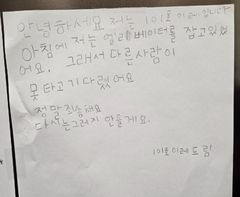 안녕하세요 저는 101호 이레입니다
아침에 저는 엘레베이터를 잡고있었
어요. 그래서 다른사람이
못 타고 기다렸어요
정말 죄송해요
다시는 그러지 안을게요.
101호 이레 드림